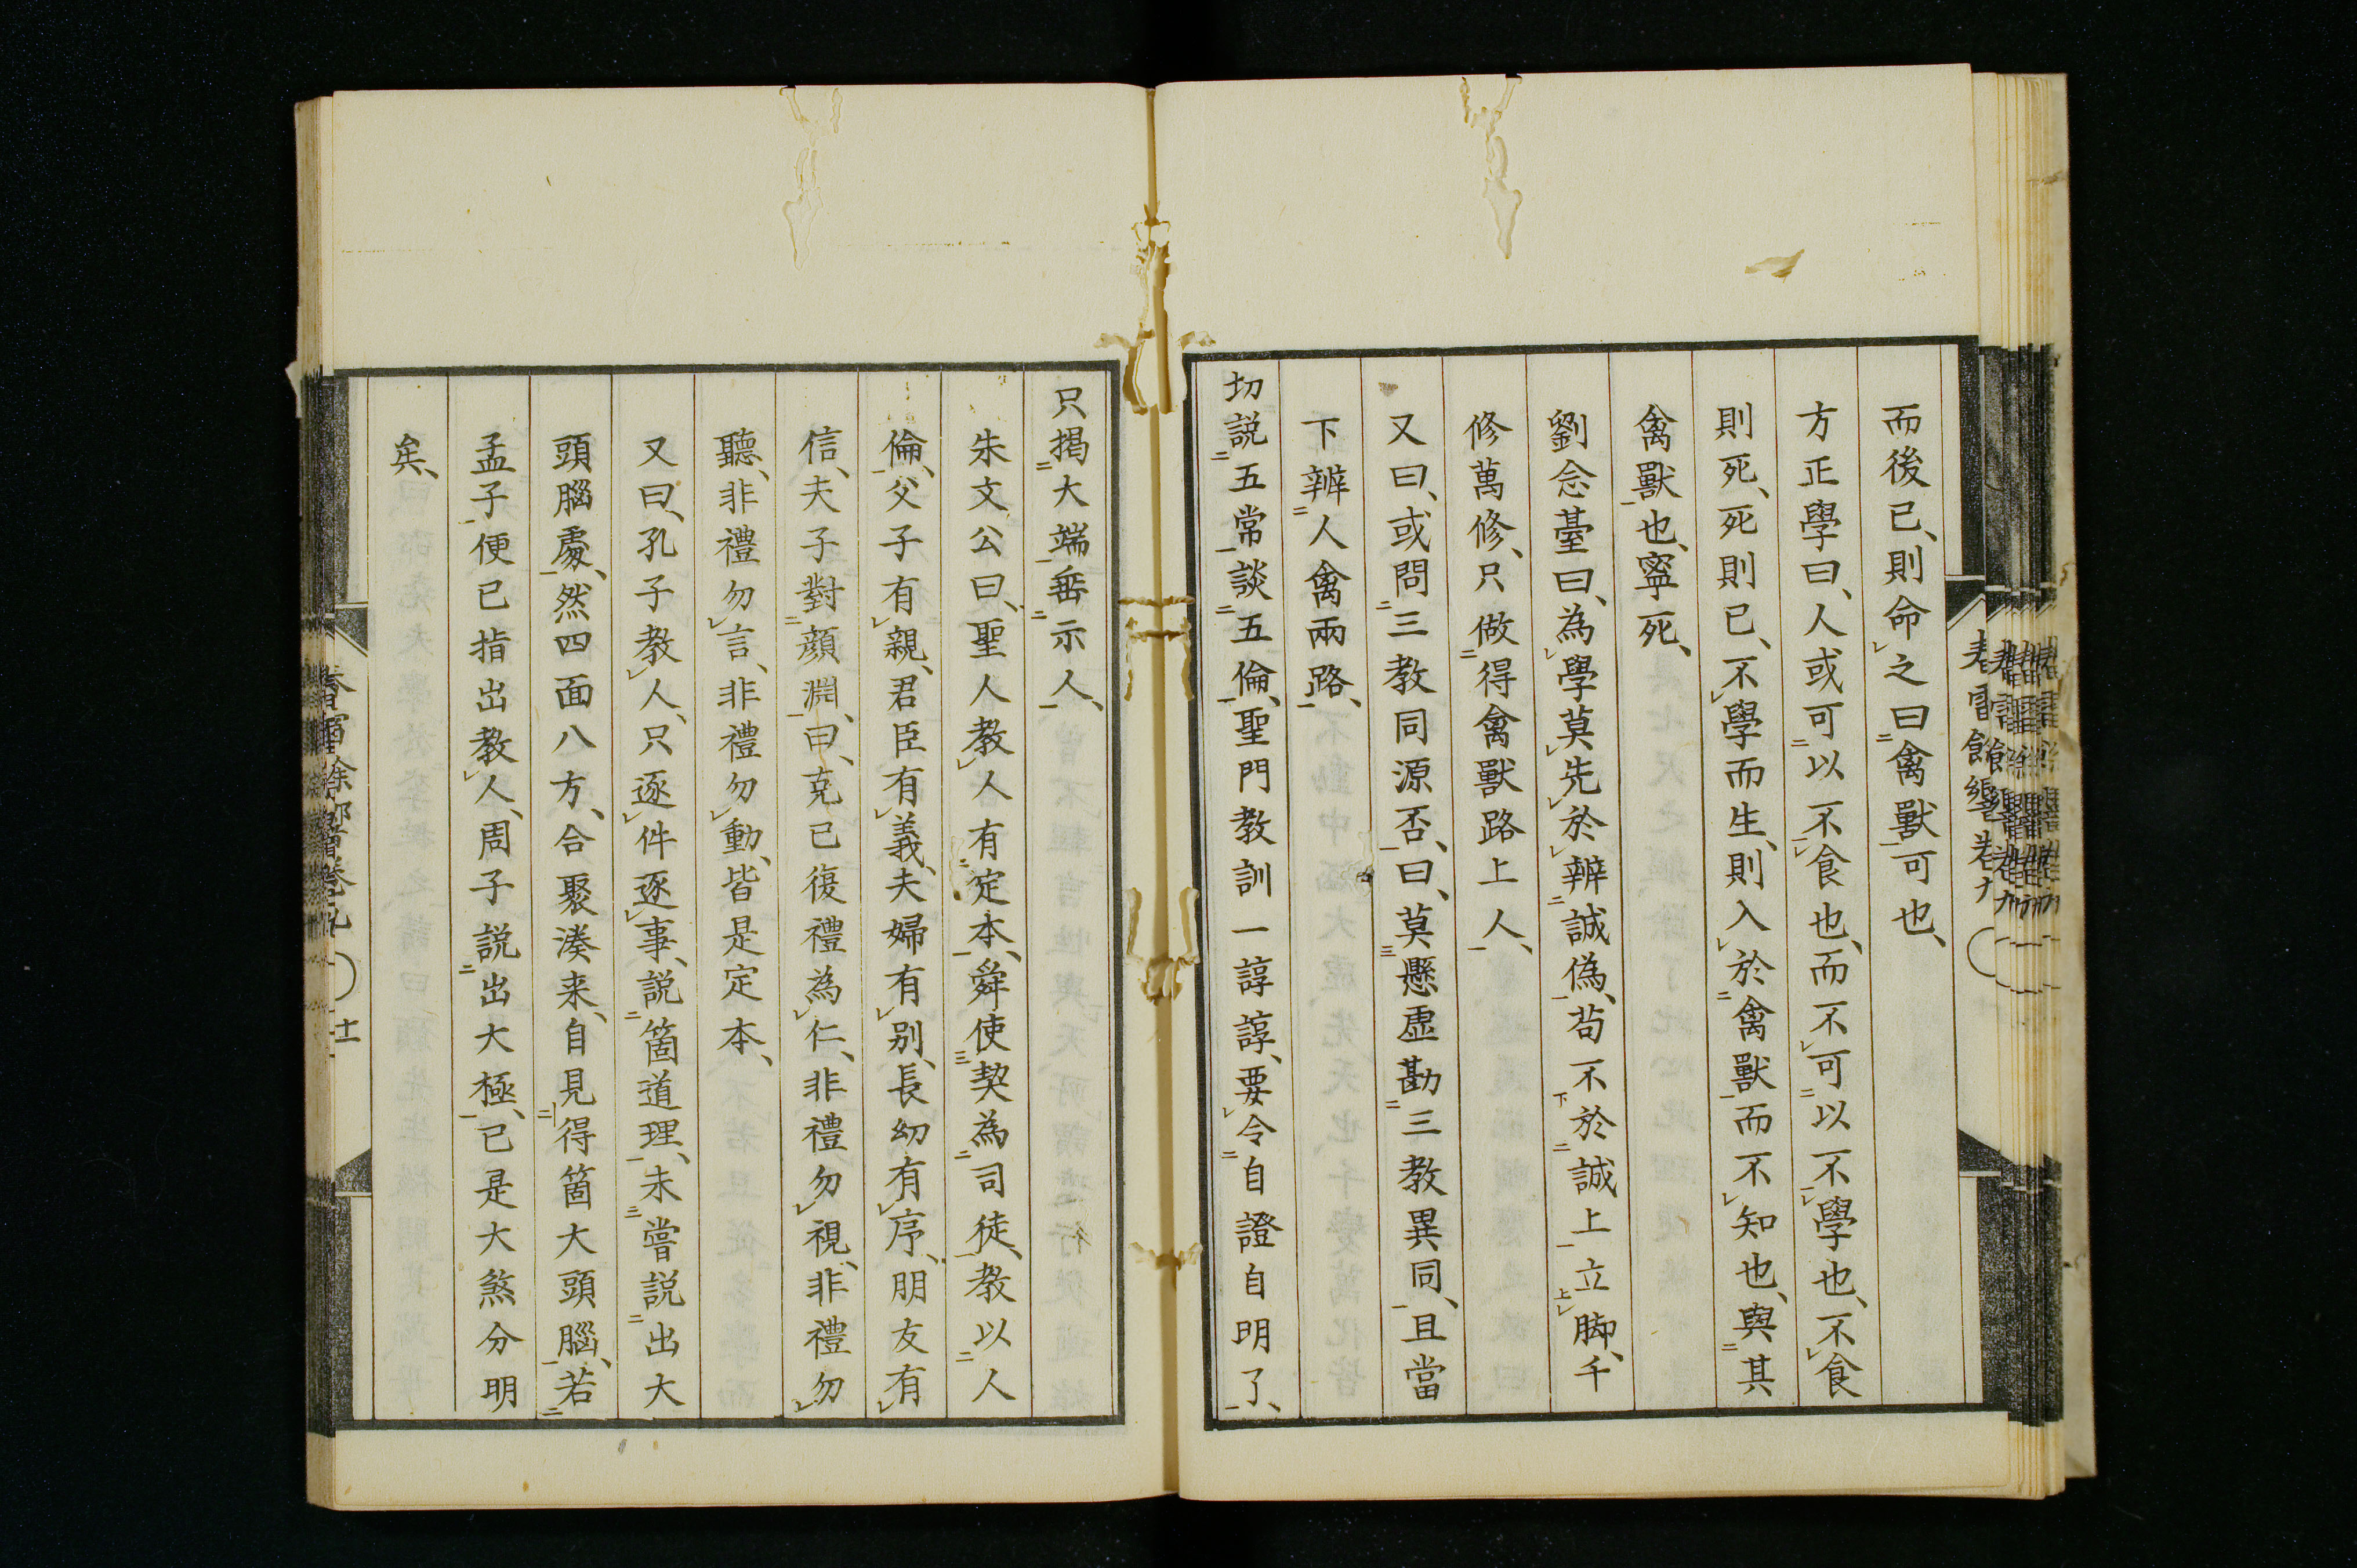 而後已、則命之曰禽獸可也、
方正學曰、人或可以不食也、而不可以不學也、不食
則死、死則已、不學而生、則入於禽獸而不知也、與其
禽獸也、寧死、
劉念臺曰、為學莫先於辨誠偽、苟不於誠上立脚、千
修萬修、只做得禽獸路上人、
又曰、或問三教同源否、曰、莫懸虛勘三教異同、且當
下辨人禽兩路、
切説五常談五倫、聖門教訓一諄諄、要令自證自明了、
只揭大端垂示人、
朱文公曰、聖人教人有定本、舜使契為司徒、教以人
倫、父子有親、君臣有義、夫婦有別、長幼有序、朋友有
信、夫子對顔淵、曰、克己復禮為仁、非禮勿視、非禮勿
聽、非禮勿言、非禮勿動、皆是定本、
又曰、孔子教人、只逐件逐事、説箇道理、未嘗説出大
頭腦處、然四面八方、合聚湊来、自見得箇大頭腦、若
孟子便已指出教人、周子説出大極、已是大煞分明
矣、
十一